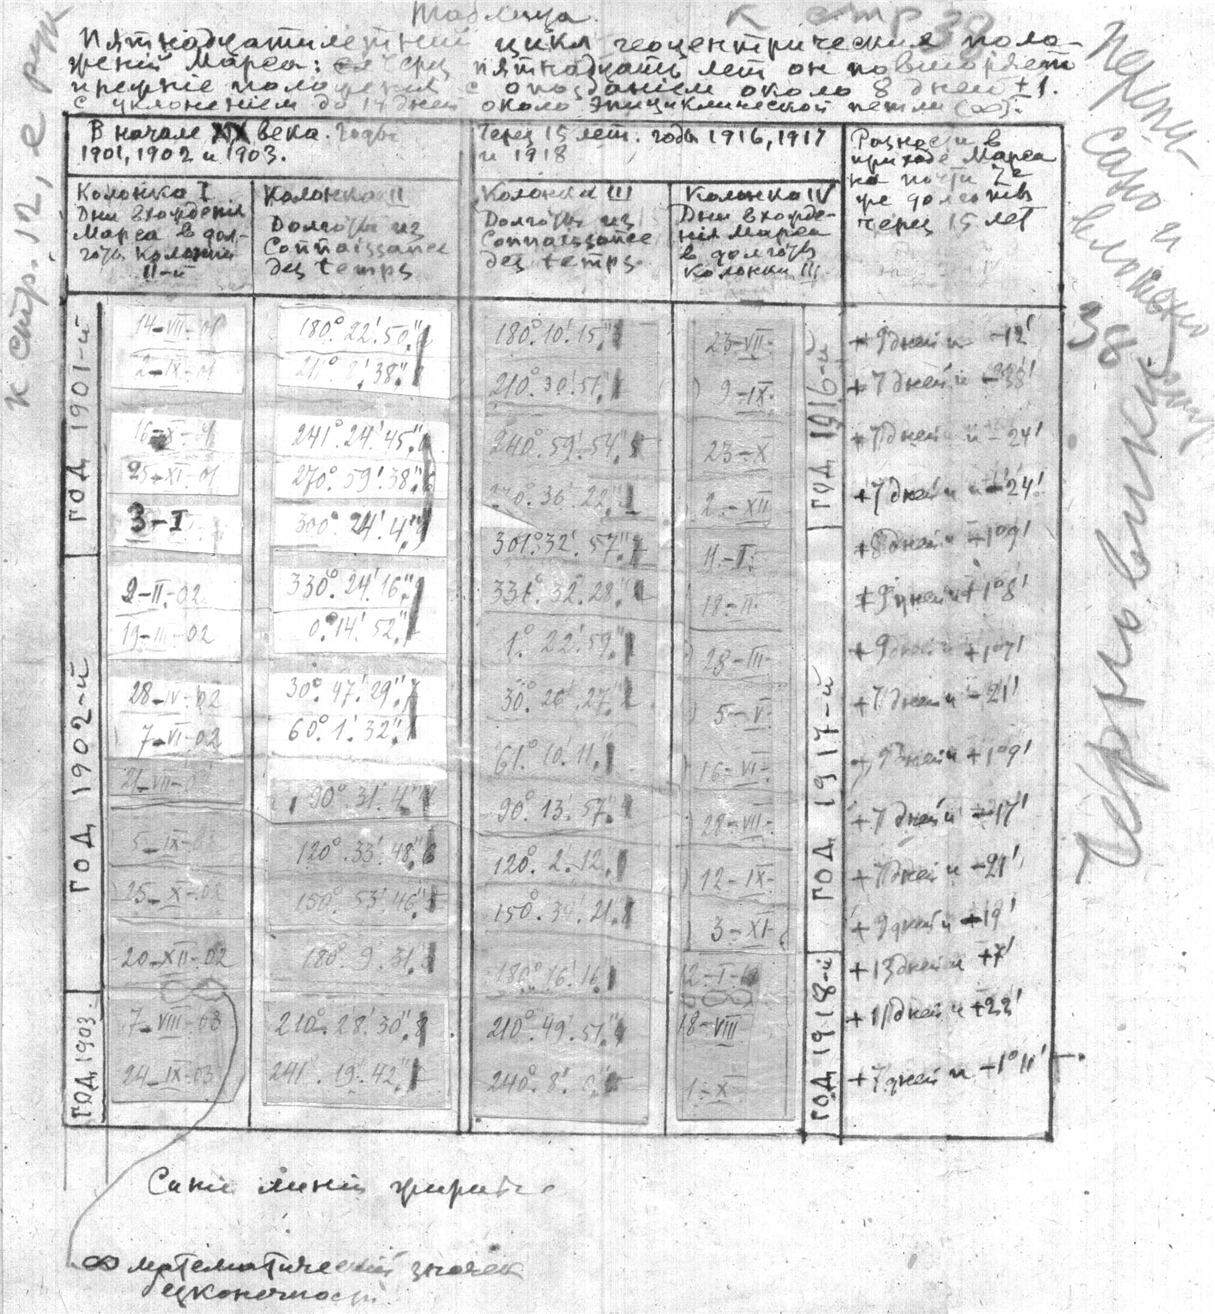 Таблица. К стр 38
Пятнадцатилетний цикл геоцентрические поло-
жений Марса: через пятнадцать лет он повторяет
прежние положения с опозданием около 8 дней ±1.
с уклонением до 14 дней около эпициклической петли (∞).
В начале XX века. Годы
1901, 1902 и 1903.
Через 15 лет. годы 1916, 1917
и 1918
Разности в
приходе Марса
на почти те
же долготы
через 15 лет
Колонка I
Дни вхождения
Марса в дол-
готы колонки
II-й
Колонка II
Долготы из
Connaissance
des temps
Колонка III
Долготы из
Connaissance
des temps.
Колонка IV
Дни вхожде-
ния Марса
в долготы
Колонки III
ГОД 1901-й
ГОД 1902-й
ГОД 1903
ГОД 1916-й
ГОД 1917-й
ГОД 1918-й
14-VII-01 180° 22' 50" 180° 10' 15" 23-VII +9 дней и -12'
2-IX-01 38" 210° 30' 51" 9-IX +7 дней и -38'
16-X-01 241° 24' 45" 240° 59' 54" 23-X +7 дней и -24'
25-XI-01 270° 59' 38" 270° 36' 22" 2-XII +7 дней и -24'
3-I 300° 24' 4" 301° 32' 57" 11-I +8 дней +1°09'
2-II-02 330° 24' 16" 331° 32' 28" 18-II +9 дней +1°8'
19-III-02 0° 14' 52" 1° 22' 59" 28-III +9 дней и +1°7'
28-IV-02 30° 47' 29" 30° 26' 27" 5-V +7 дней и -21'
7-VI-02 60° 1' 32" 61° 10' 11" 16-VI +9 дней +1°9'
21-VII-02 90° 31' 4" 90° 13' 57" 28-VII +7 дней и -17'
5-IX-02 120° 33' 48" 120° 2' 12" 12-IX +7 дней и -21'
25-X-02 150° 53' 46" 150° 34' 21" 3-XI +9 дней и -19'
20-XII-02 180° 9' 31" 180° 16' 16" 2-I +13 дней и +7'
7-VIII-03 210° 28' 30" 210° 49' 51" 18-VIII +11 дней и +22'
24-IX-03 241° 19' 42" 240° 8' 1-X +7 дней и -1°11'
Синие линии
∞ математический значек
бесконечности
к стр. 12, е рук
Перепи-
сано и
вложено
38 стр
Черновики